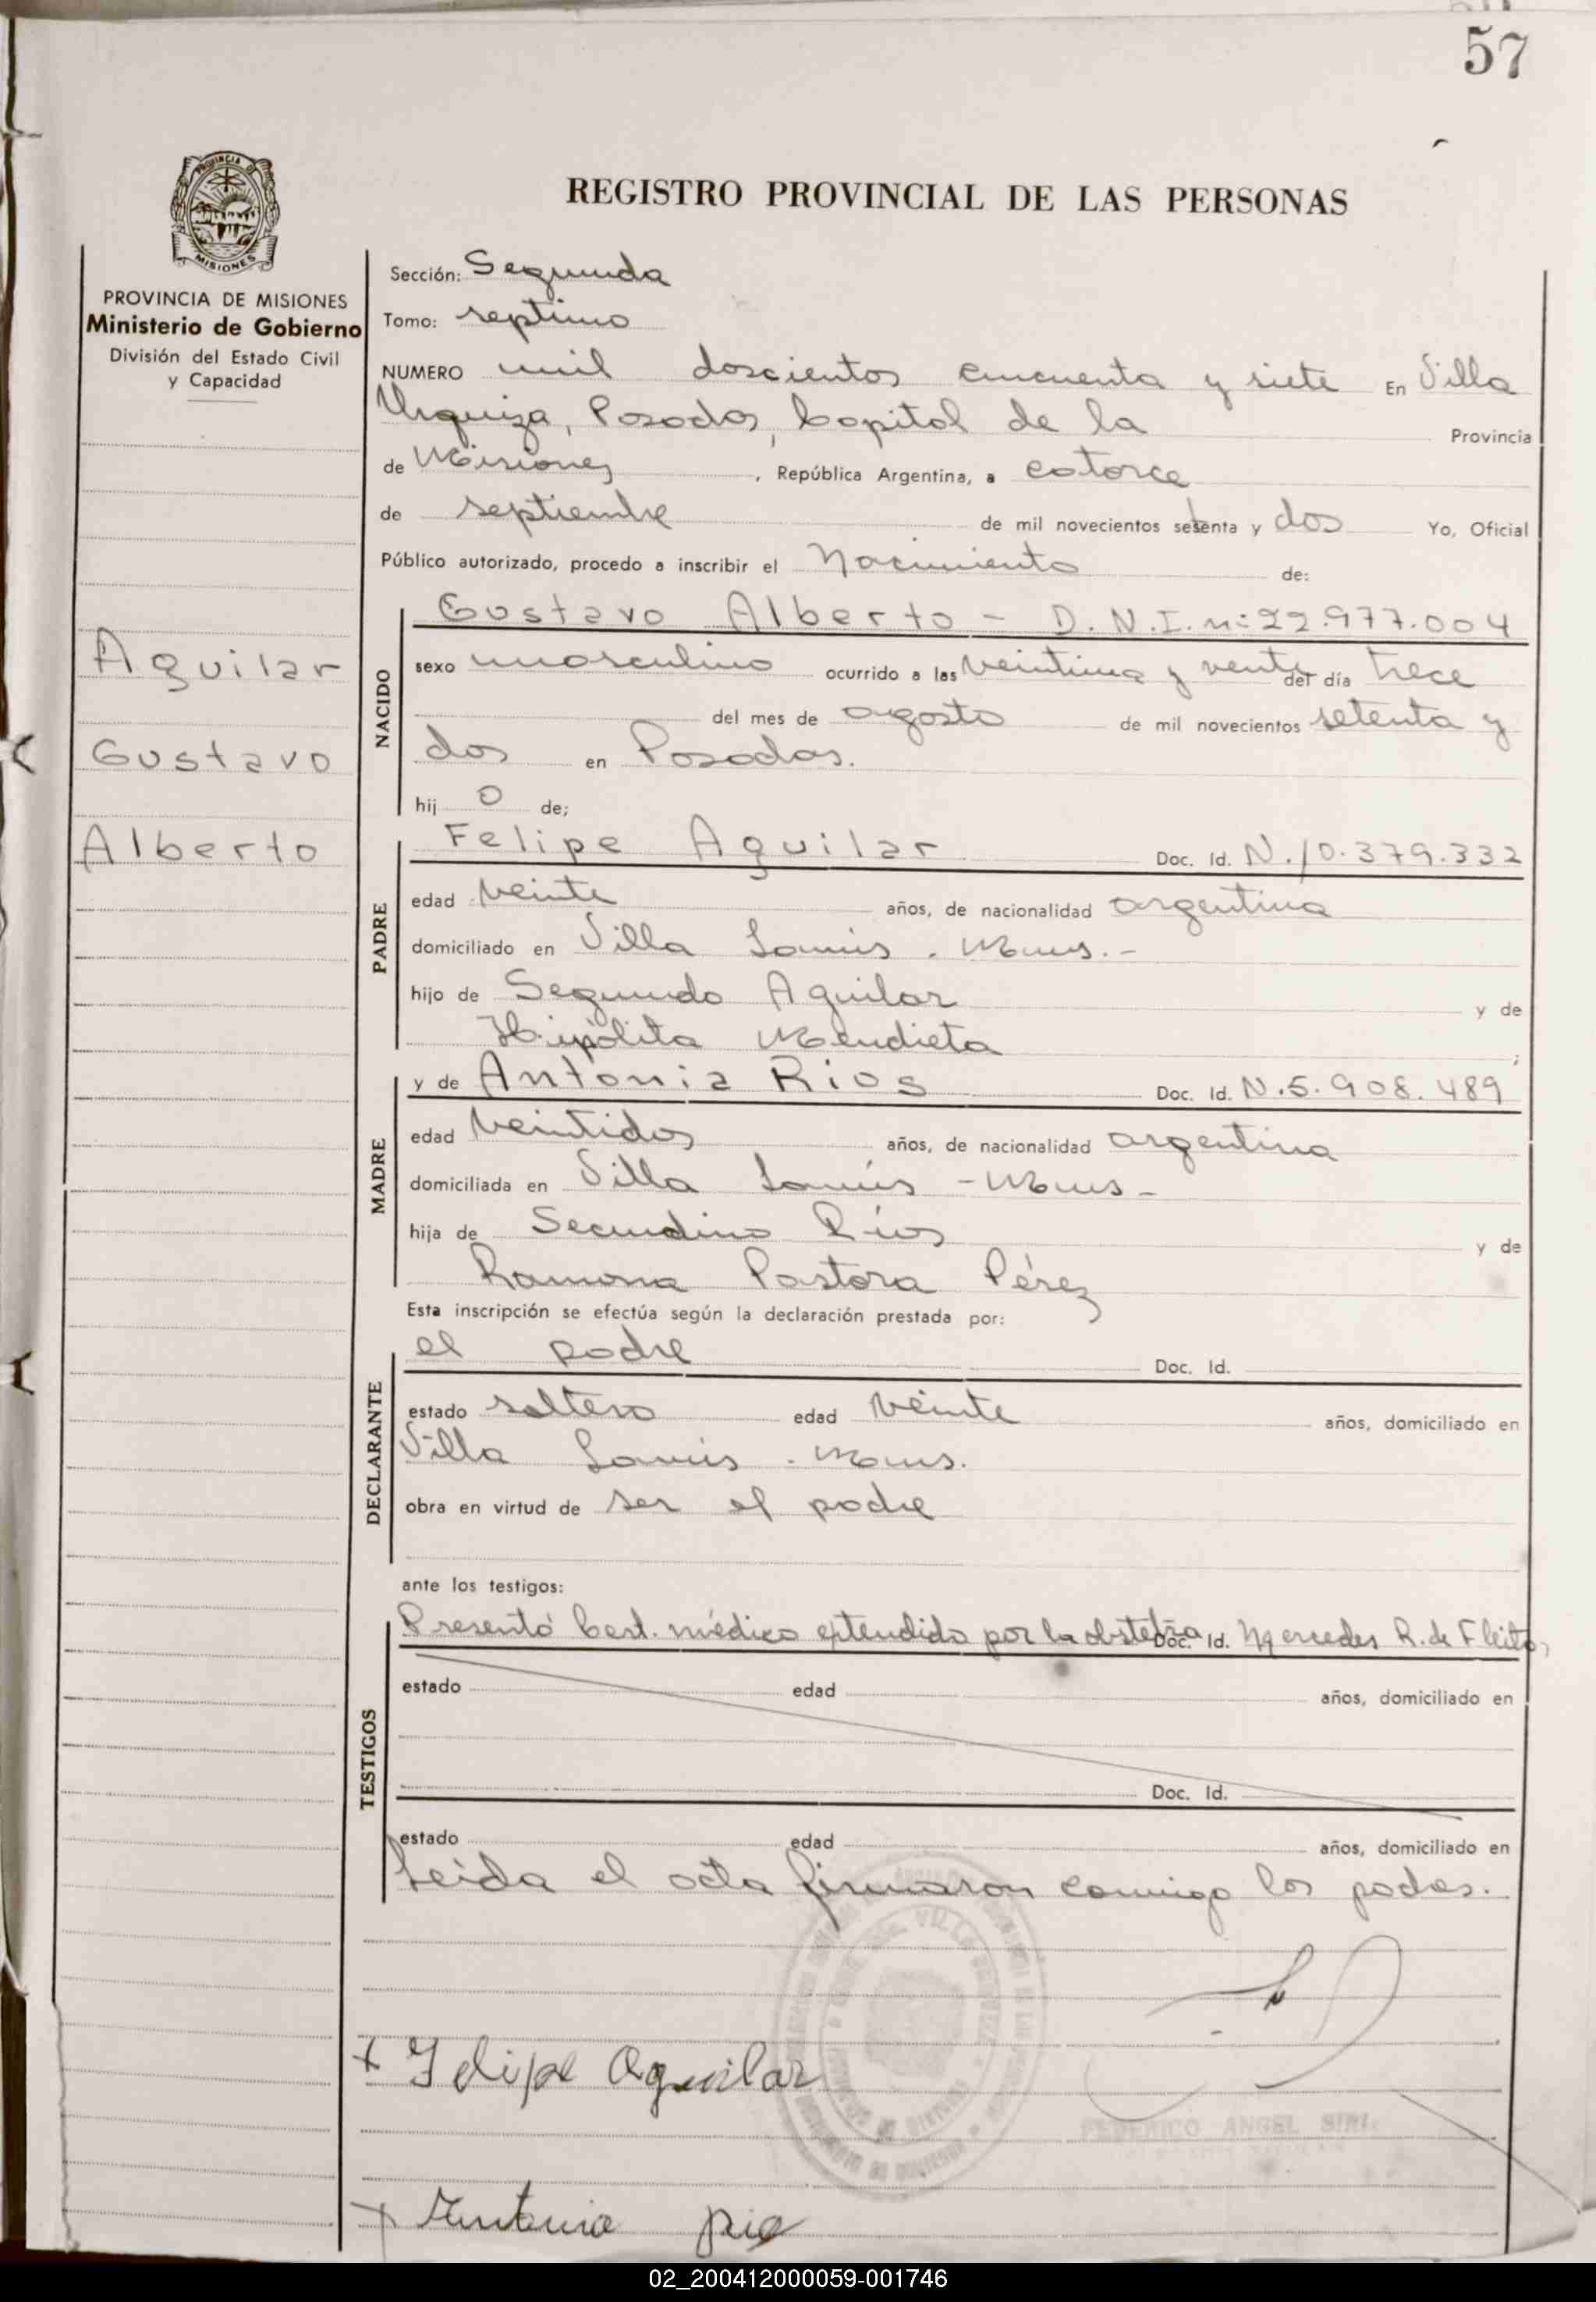 57
REGISTRO PROVINCIAL DE LAS PERSONAS
PROVINCIA DE MISIONES
Ministerio de Gobierno
División del Estado Civil
y Capacidad
Aguilar
Gustavo
Alberto
Sección: Segunda
Tomo: septimo
NUMERO mil doscientos cincuenta y siete En Villa
Urquiza, Posadas, Capital de la Provincia
de Misiones, República Argentina, a catorce
de septiembre de mil novecientos setenta y dos Yo, Oficial
Público autorizado, procedo a inscribir el Nacimiento de:
NACIDO
Gustavo Alberto - D.N.I. nº: 22.977.004
sexo masculino ocurrido a las veintiuna y veinte del día trece
del mes de agosto de mil novecientos setenta y
dos en Posadas.
hij o de;
PADRE
Felipe Aguilar Doc. Id. N. 10.379.332
edad veinte años, de nacionalidad argentina
domiciliado en Villa Lanús. Mnes.-
hijo de Segundo Aguilar y de
Hipólita Mendieta ;
MADRE
y de Antonia Rios Doc. Id. N.5.908.489
edad veintidos años, de nacionalidad argentina
domiciliada en Villa Lanús - Mnes -
hija de Secundino Ríos y de
Ramona Pastora Pérez
Esta inscripción se efectúa según la declaración prestada por:
DECLARANTE
el padre Doc. Id.
estado soltero edad veinte años, domiciliado en
Villa Lanús. Mnes.
obra en virtud de ser el padre
ante los testigos:
TESTIGOS
Presentó Cert. médico extendido por la obstetra Doc. Id. Mercedes R. de Fleitas
estado edad años, domiciliado en
Doc. Id.
estado edad años, domiciliado en
Leida el acta firmaron conmigo los padres.
+ Felipe Aguilar
FEDERICO ANGEL SIRI.
+ Antonia Rio
02_200412000059-001746